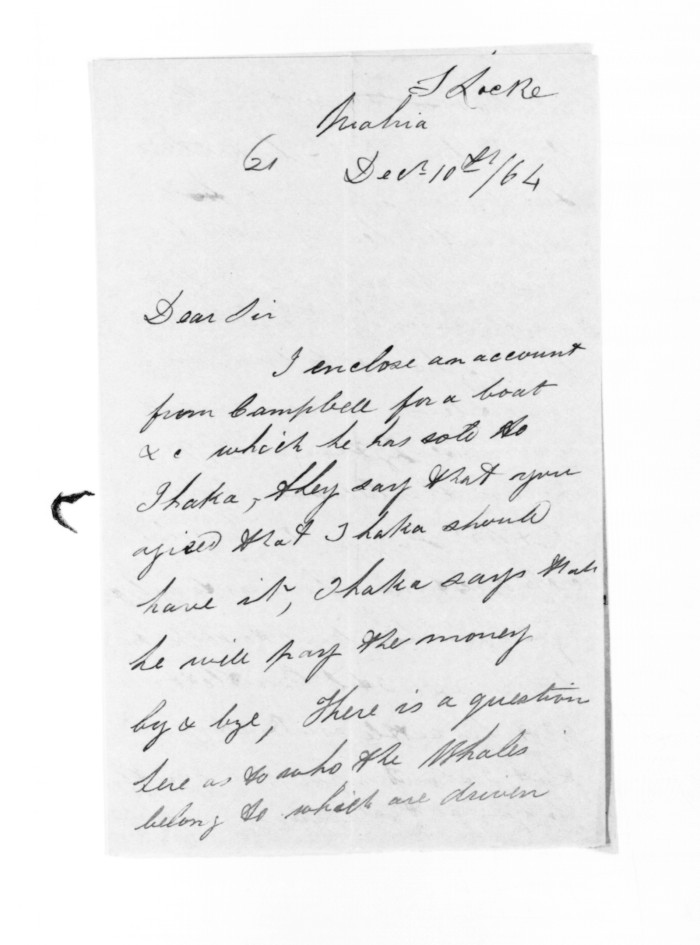 S Locke
Mahia
Decr 10th/64
Dear Sir
I enclose an account
from Campbell for a boat
& c which he has sold to
Ihaka, they say that you
agreed that Ihaka should
have it, Ihaka says that
he will pay the money
by & bye, There is a question
here as to who the Whales
belong to which are driven